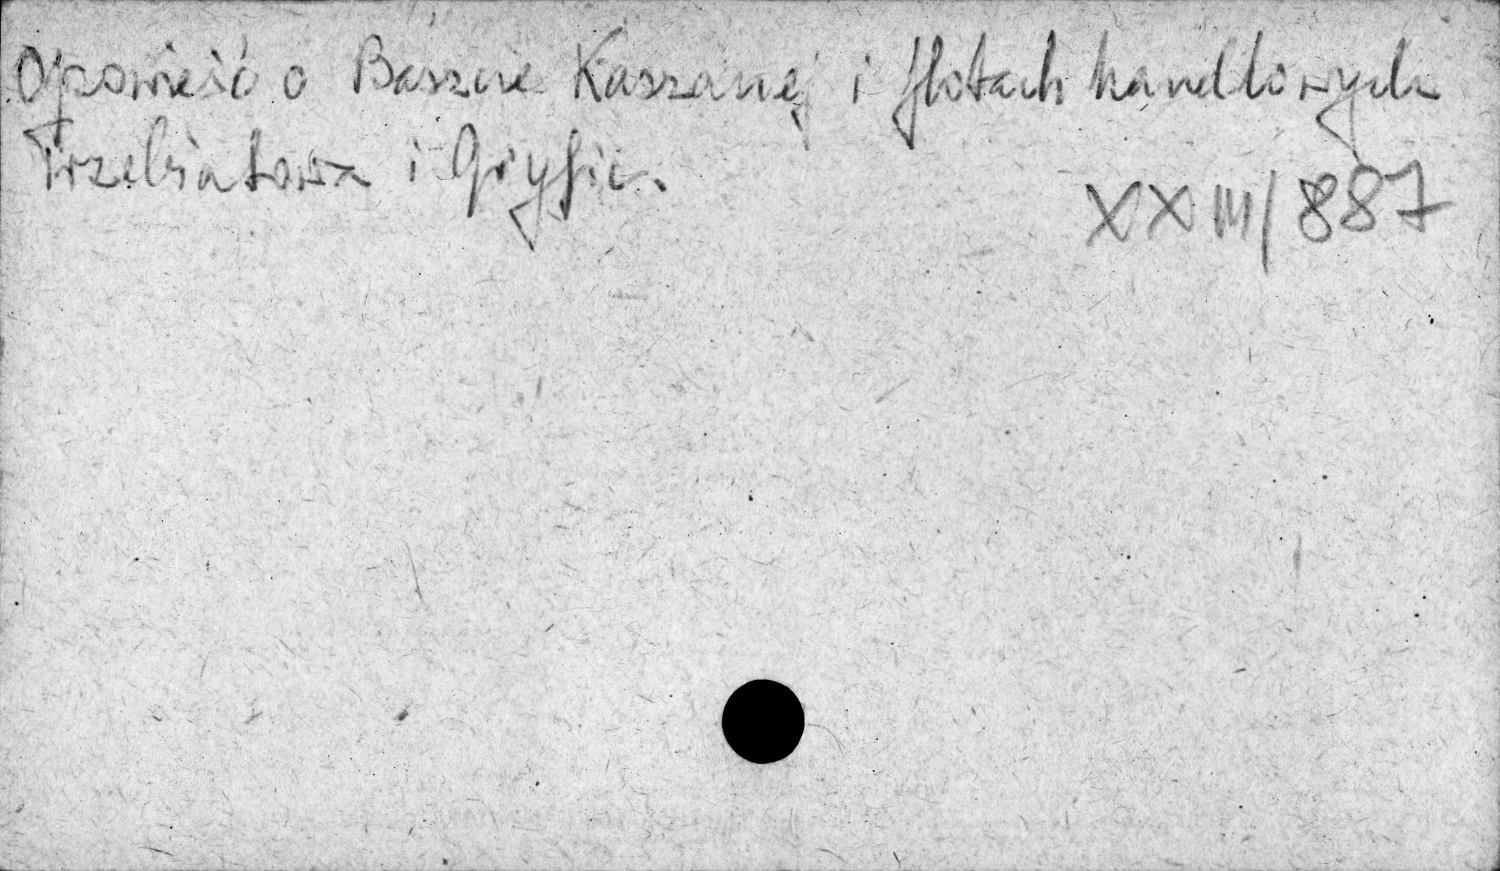 Opowieść o Baszcie Kaszanej i flotach handlowych
Trzebiatowa i Gryfic.
XXIII/887